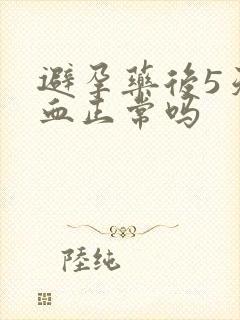 避孕藥後5
血正常嗎
陸純